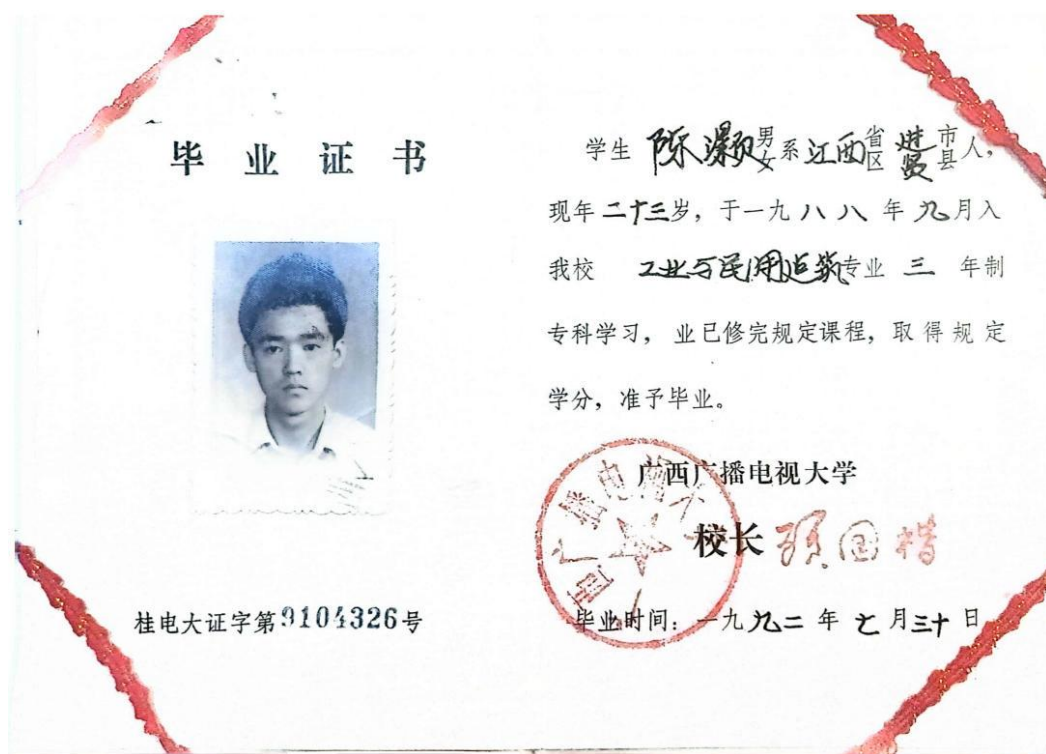 毕业证书
桂电大证字第9104326号
学生 陈灏 男女 系江西省区进贤市县人，
现年二十三岁，于一九八八年九月入
我校 工业与民用建筑专业 三 年制
专科学习，业已修完规定课程，取得规定
学分，准予毕业。
广西广播电视大学
校长
毕业时间：一九九二年七月三十日